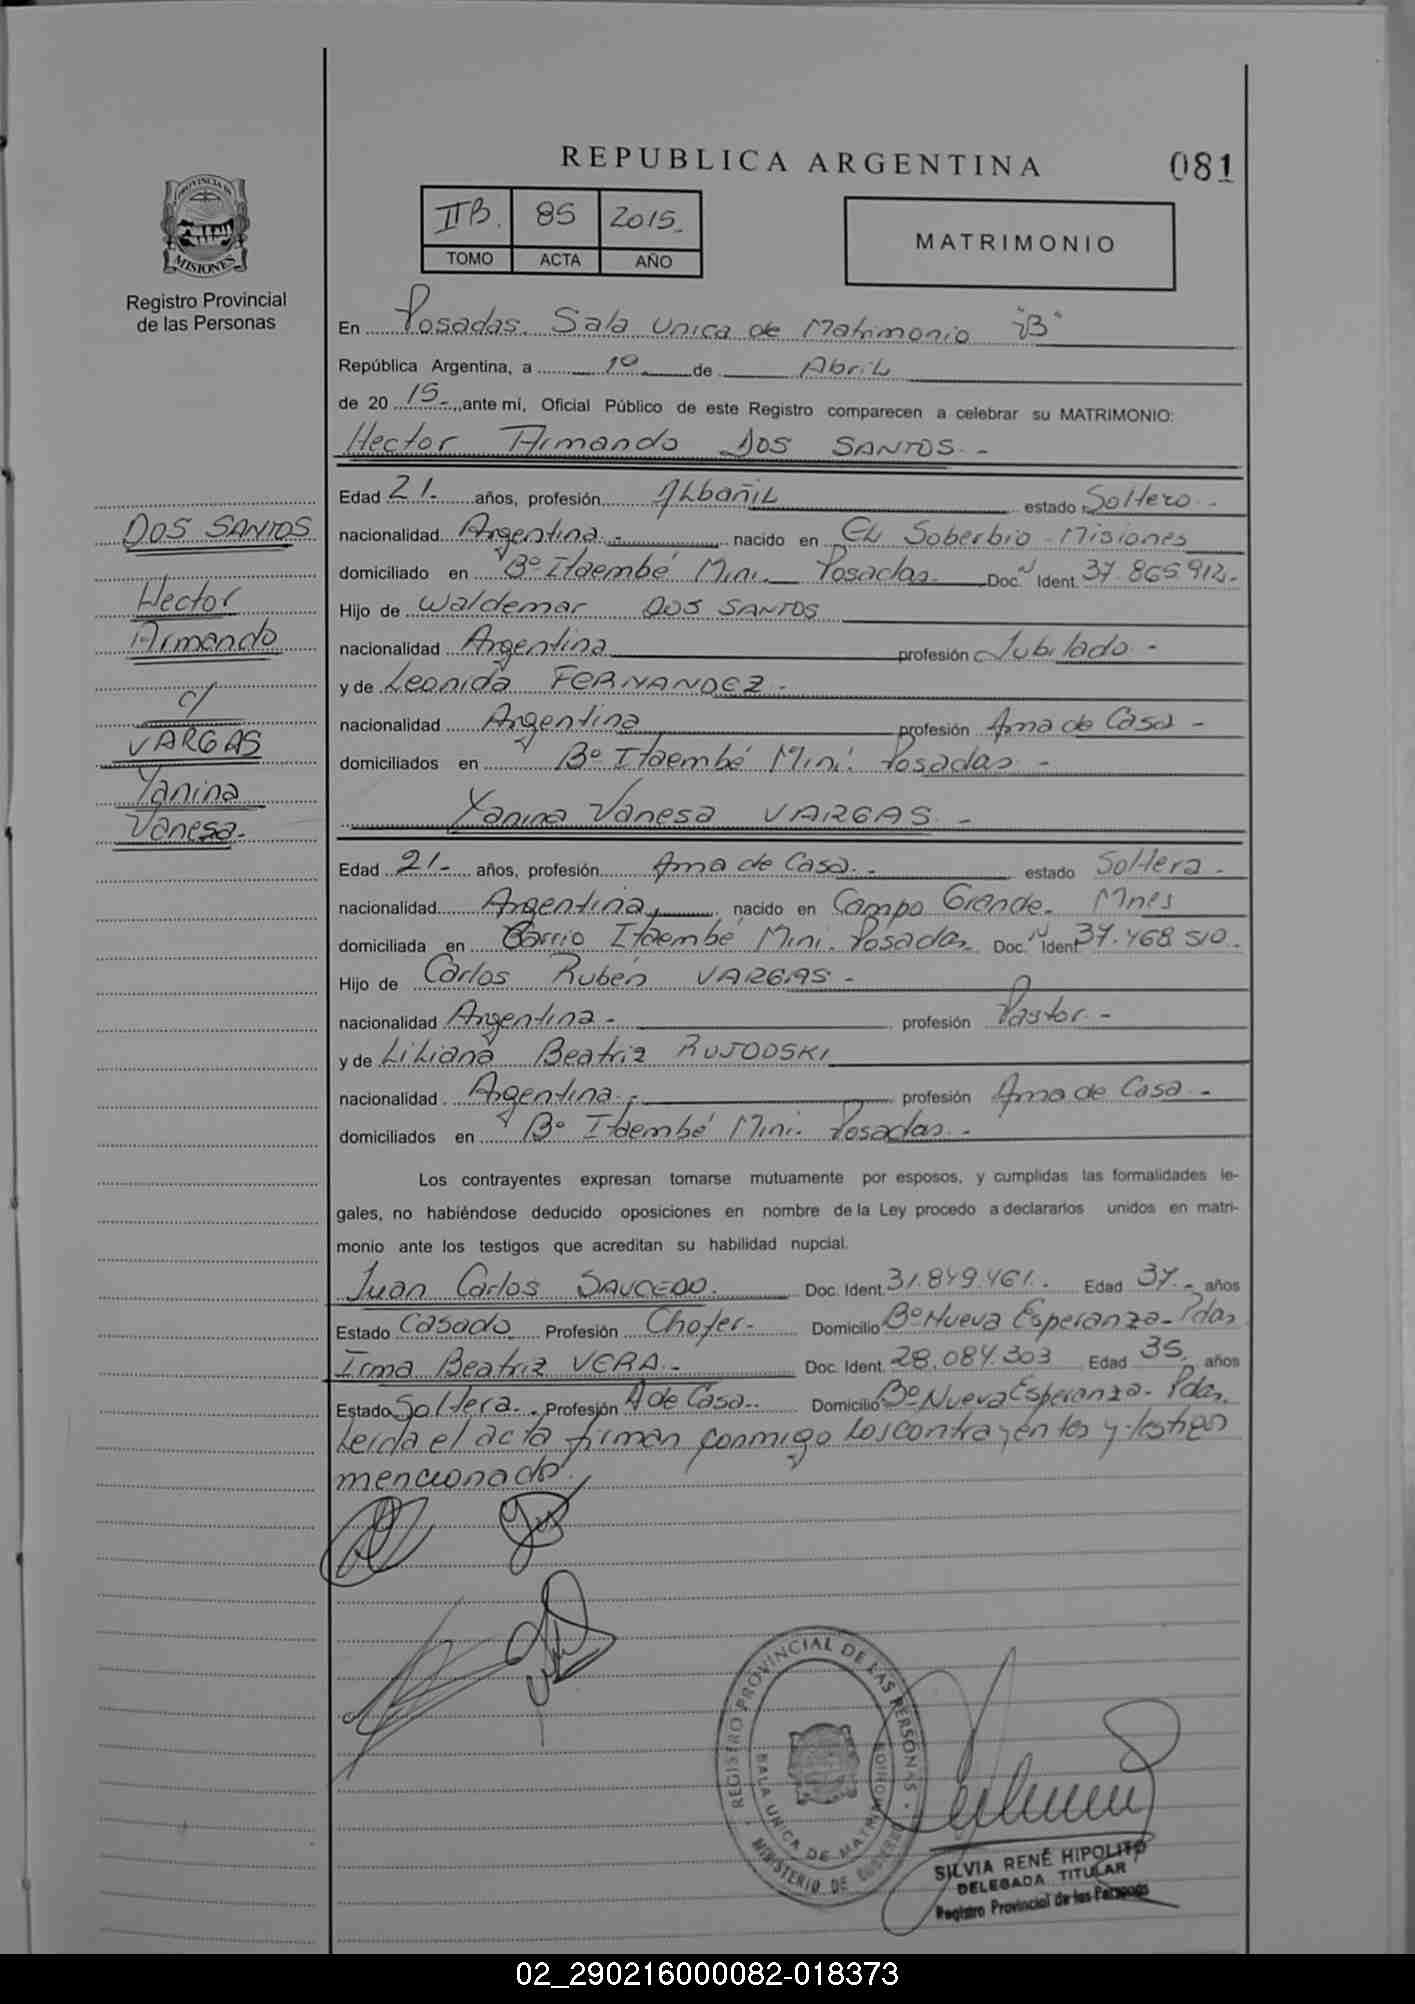 REPUBLICA ARGENTINA
081
PROVINCIA DE
MISIONES
Registro Provincial
de las Personas
IIB. 85 2015.
TOMO ACTA AÑO
MATRIMONIO
En Posadas. Sala Unica de Matrimonio "B"
República Argentina, a 10 de Abril
de 20 15-, ante mí, Oficial Público de este Registro comparecen a celebrar su MATRIMONIO:
Hector Armando DOS SANTOS. -
Edad 21.- años, profesión ALbañiL estado Soltero. -
nacionalidad Argentina. - nacido en EL Soberbio - Misiones
domiciliado en Bº Itaembé Mini. Posadas. Doc. N Ident. 37.865.912.-
Hijo de Waldemar DOS SANTOS
nacionalidad Argentina profesión Jubilado. -
y de Leonida FERNANDEZ. -
nacionalidad Argentina profesión Ama de Casa -
domiciliados en Bº Itaembé Mini. Posadas -
Yanina Vanesa VARGAS. -
Edad 21.- años, profesión Ama de Casa. - estado Soltera. -
nacionalidad Argentina, nacido en Campo Grande. Mnes
domiciliada en Barrio Itaembé Mini. Posadas. Doc. N Ident 37.468.510.
Hijo de Carlos Rubén VARGAS. -
nacionalidad Argentina. - profesión Pastor. -
y de LiLiana Beatriz RUJODSKI
nacionalidad Argentina. - profesión Ama de Casa. -
domiciliados en Bº Itaembé Mini. Posadas. -
DOS SANTOS
Hector
Armando
c/
VARGAS
Yanina
Vanesa.-
Los contrayentes expresan tomarse mutuamente por esposos, y cumplidas las formalidades le-
gales, no habiéndose deducido oposiciones en nombre de la Ley procedo a declararlos unidos en matri-
monio ante los testigos que acreditan su habilidad nupcial.
Juan Carlos SAUCEDO. Doc. Ident. 31.849.461. Edad 37.- años
Estado Casado Profesión Chofer- Domicilio Bº Nueva Esperanza- Pdas
Irma Beatriz VERA.- Doc. Ident. 28.084.303 Edad 35. años
Estado Soltera.- Profesión A de Casa. Domicilio Bº Nueva Esperanza- Pdas.
Leida el acta firman conmigo Los contrayentes y testigos
mencionado.
REGISTRO PROVINCIAL DE LAS PERSONAS
SALA UNICA DE MATRIMONIOS
MINISTERIO DE GOBIERNO
SILVIA RENÉ HIPOLITO
DELEGADA TITULAR
Registro Provincial de las Personas
02_290216000082-018373